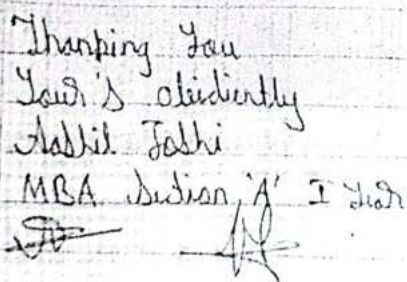 Thanking You
Your's obidiently
Aashil Joshi
MBA Section 'A' I Year